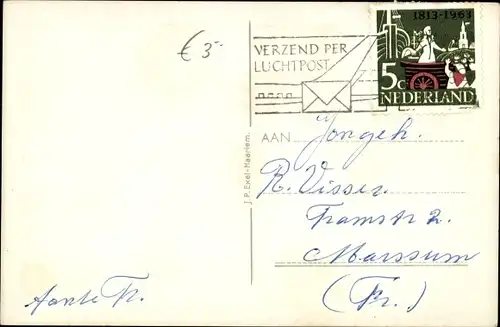 € 5-
VERZEND PER
LUCHTPOST
1813-1963
5c
NEDERLAND
AAN Jongeh.
R. Visser
Tramstr 2.
Marssum
(Fr.)
Tante Fr.
J.P. Exel-Haarlem.